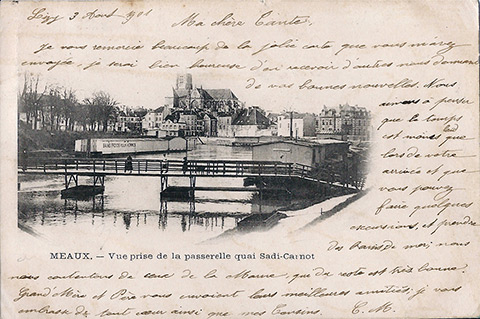 Lizy 3 Août 1901
Ma chère Tante,
Je vous remercie beaucoup de la jolie carte que vous m'avez
envoyée, je serai bien heureuse d'en recevoir d'autres nous donnant
de vos bonnes nouvelles. Nous
avons à penser
que le temps
est
lors de votre
arrivée et que
vous pouvez
faire quelques
excursions, et prendre
des bains de mer, nous
nous contentons de ceux de la Marne, qui du reste est très bonne.
Grand'Mère et Père vous envoient leurs meilleures amitiés, je vous
embrasse de tout cœur ainsi que mes Cousins. C. M.
MEAUX. — Vue prise de la passerelle quai Sadi-Carnot